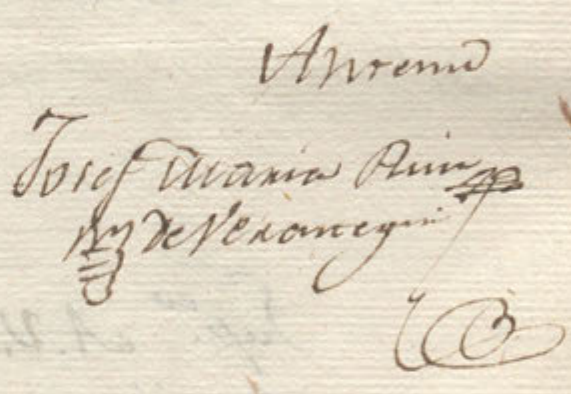 Ante mi
Josef Maria Ruiz
de Veranegui